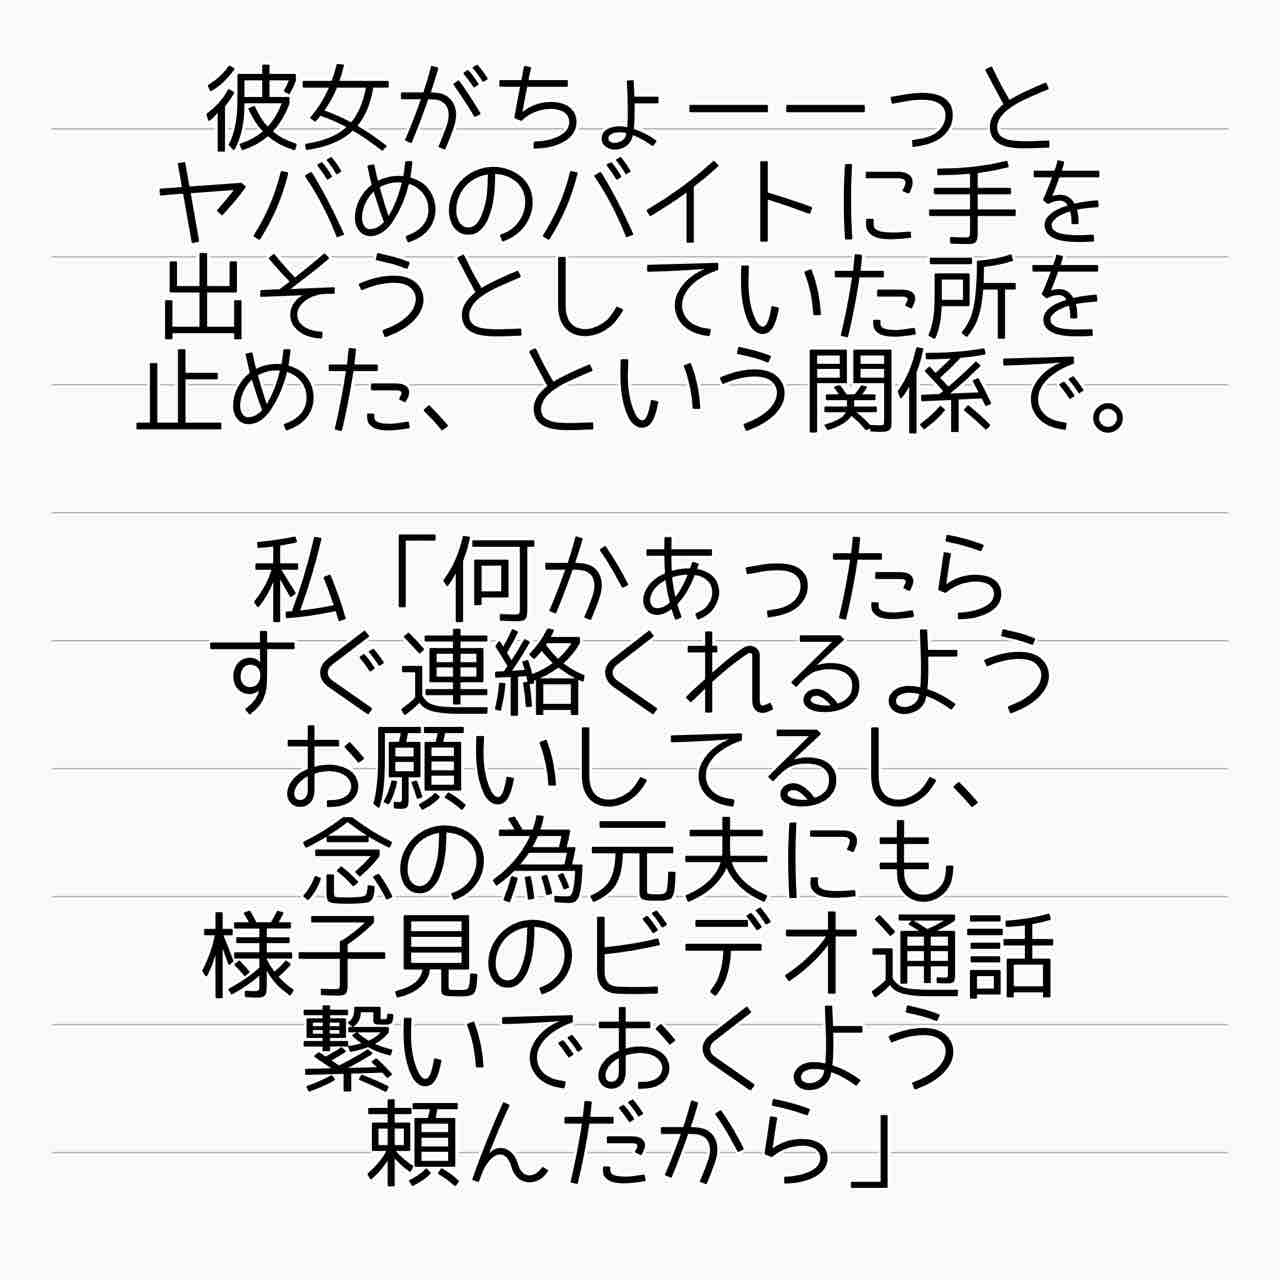 彼女がちょーーっと
ヤバめのバイトに手を
出そうとしていた所を
止めた、という関係で。
私「何かあったら
すぐ連絡くれるよう
お願いしてるし、
念の為元夫にも
様子見のビデオ通話
繋いでおくよう
頼んだから」